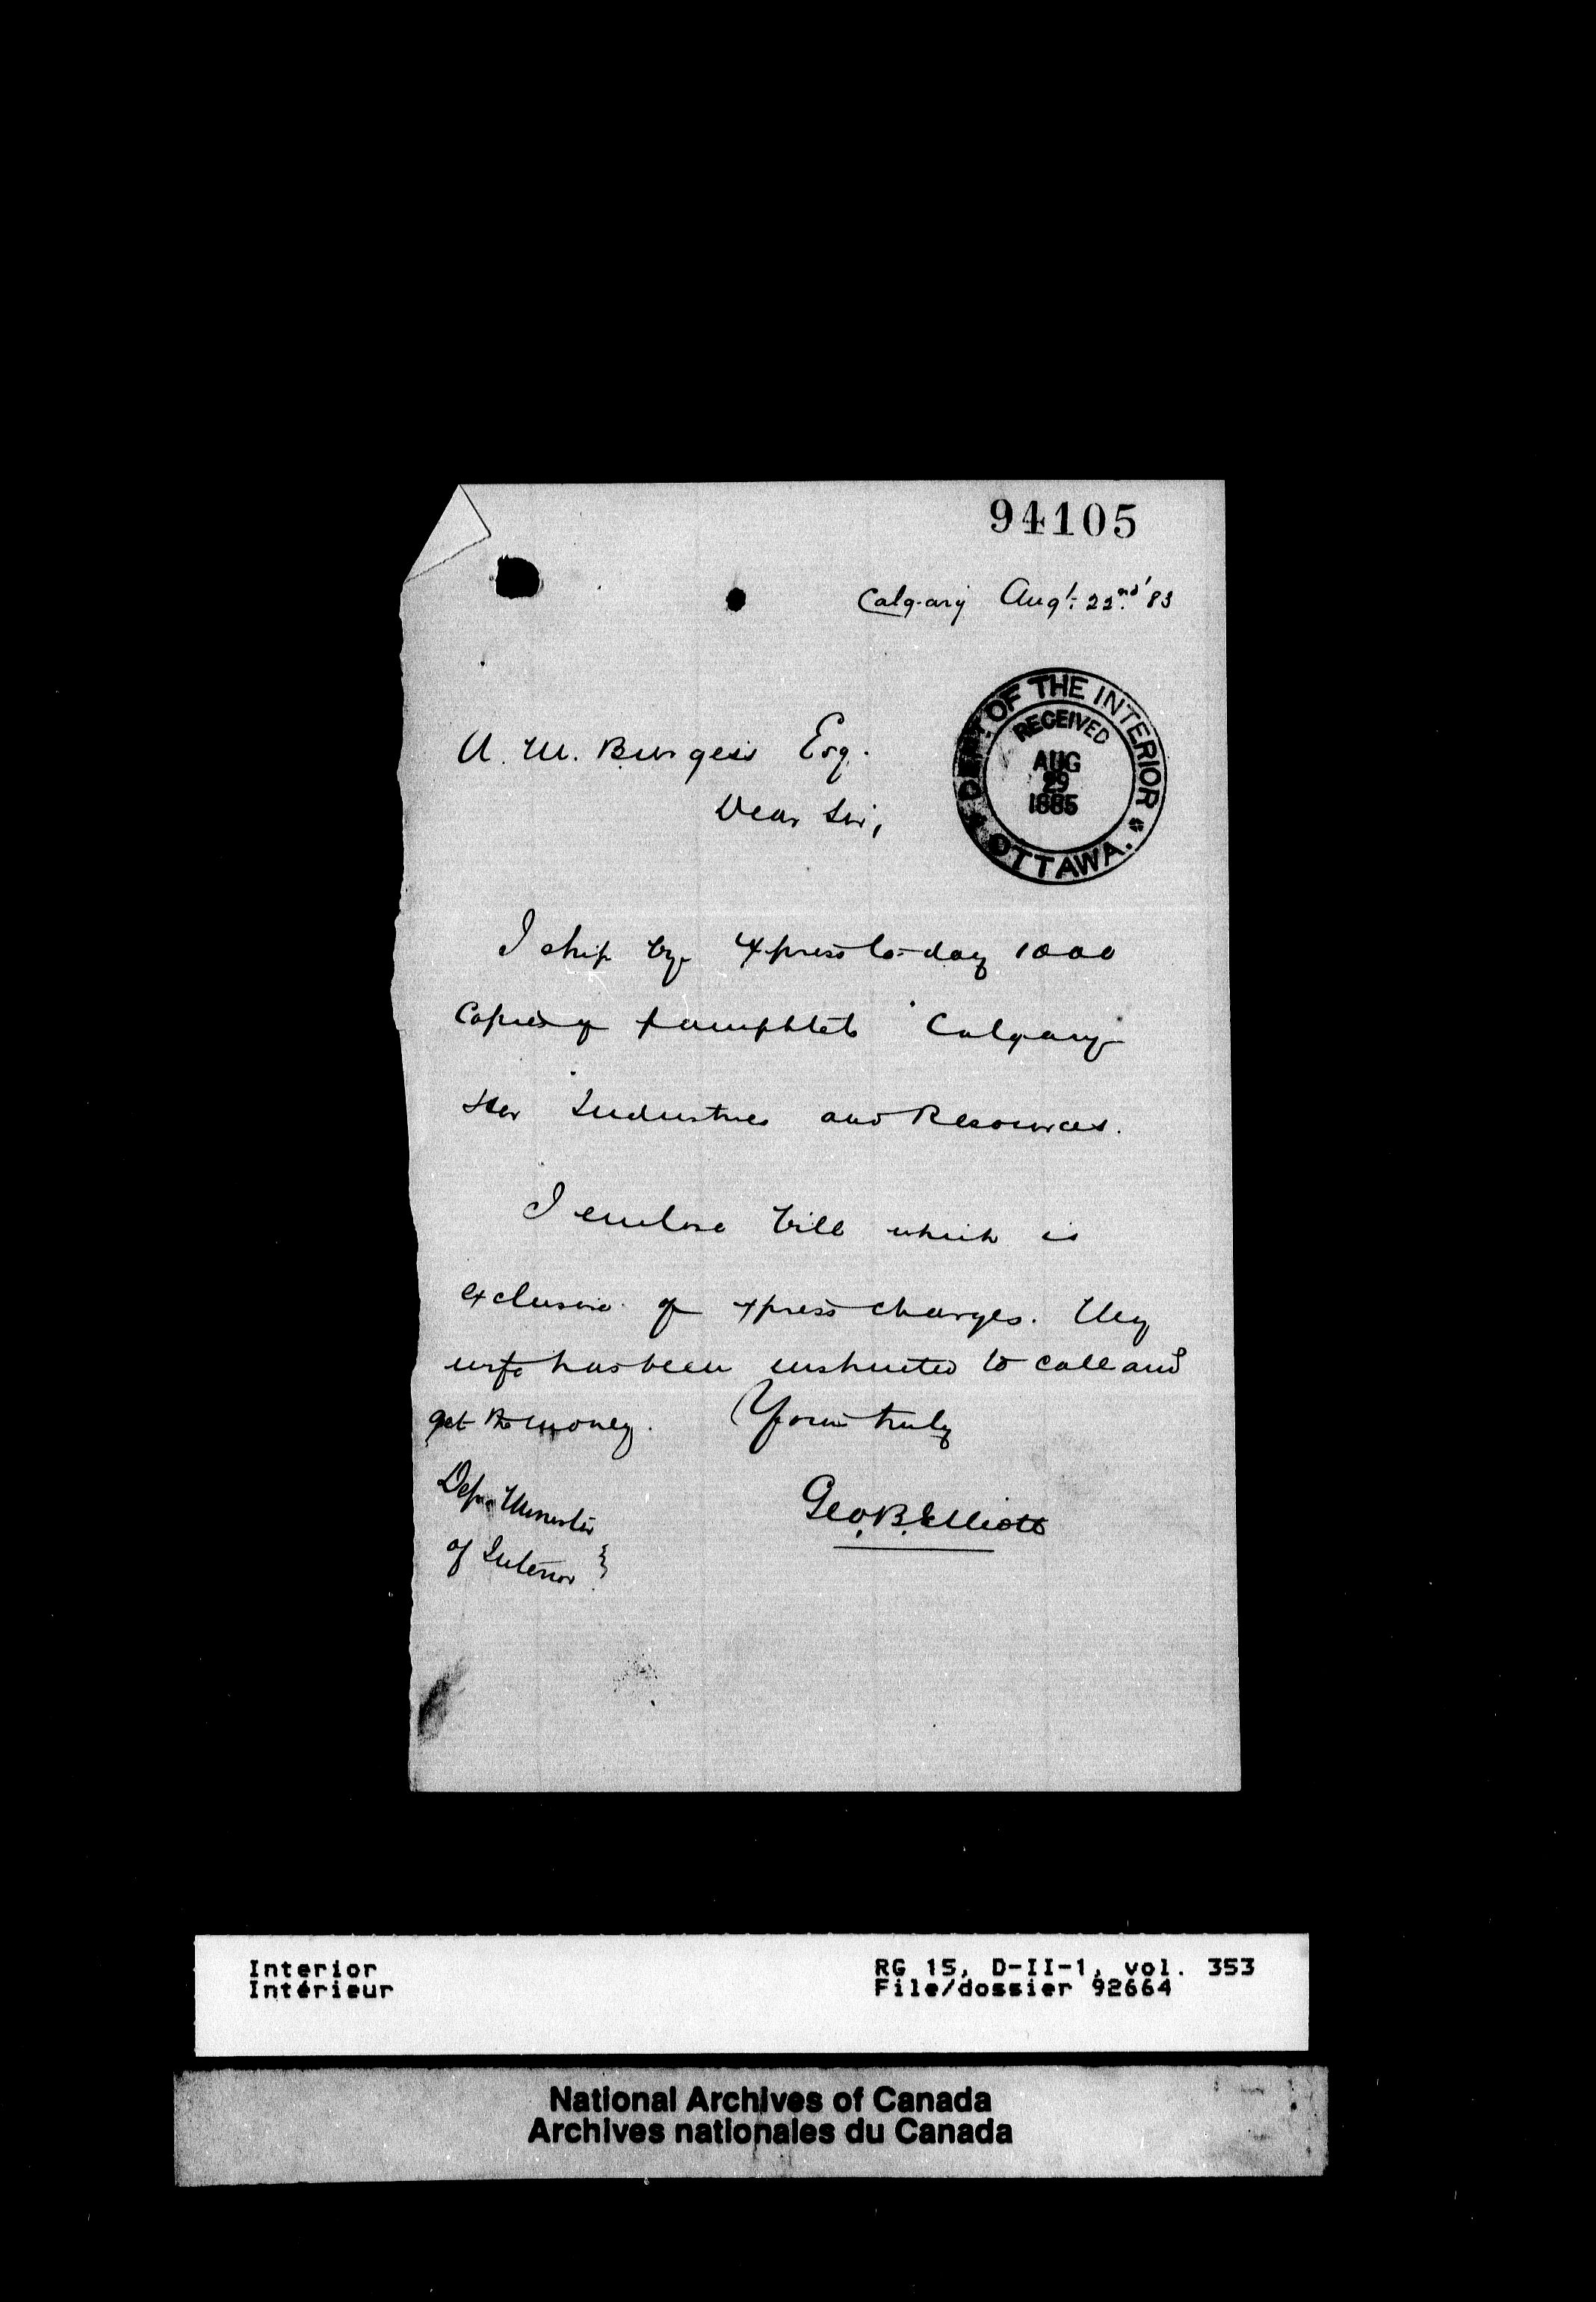 94105
Calgary Augt: 22nd '83
A. M. Burgess Esq.
Dear Sir,
DEPT OF THE INTERIOR
RECEIVED
AUG
29
1885
OTTAWA.
I ship by Xpress to-day 1000
Copies of pamphlets "Calgary
Her Industries and Resources.
I enclose bill which is
exclusive of xpress charges. My
wife has been instructed to call and
get the money. Yours truly
Geo. B. Elliott
Depy Minister
of Interior
Interior
Intérieur
RG 15, D-II-1, vol. 353
File/dossier 92664
National Archives of Canada
Archives nationales du Canada